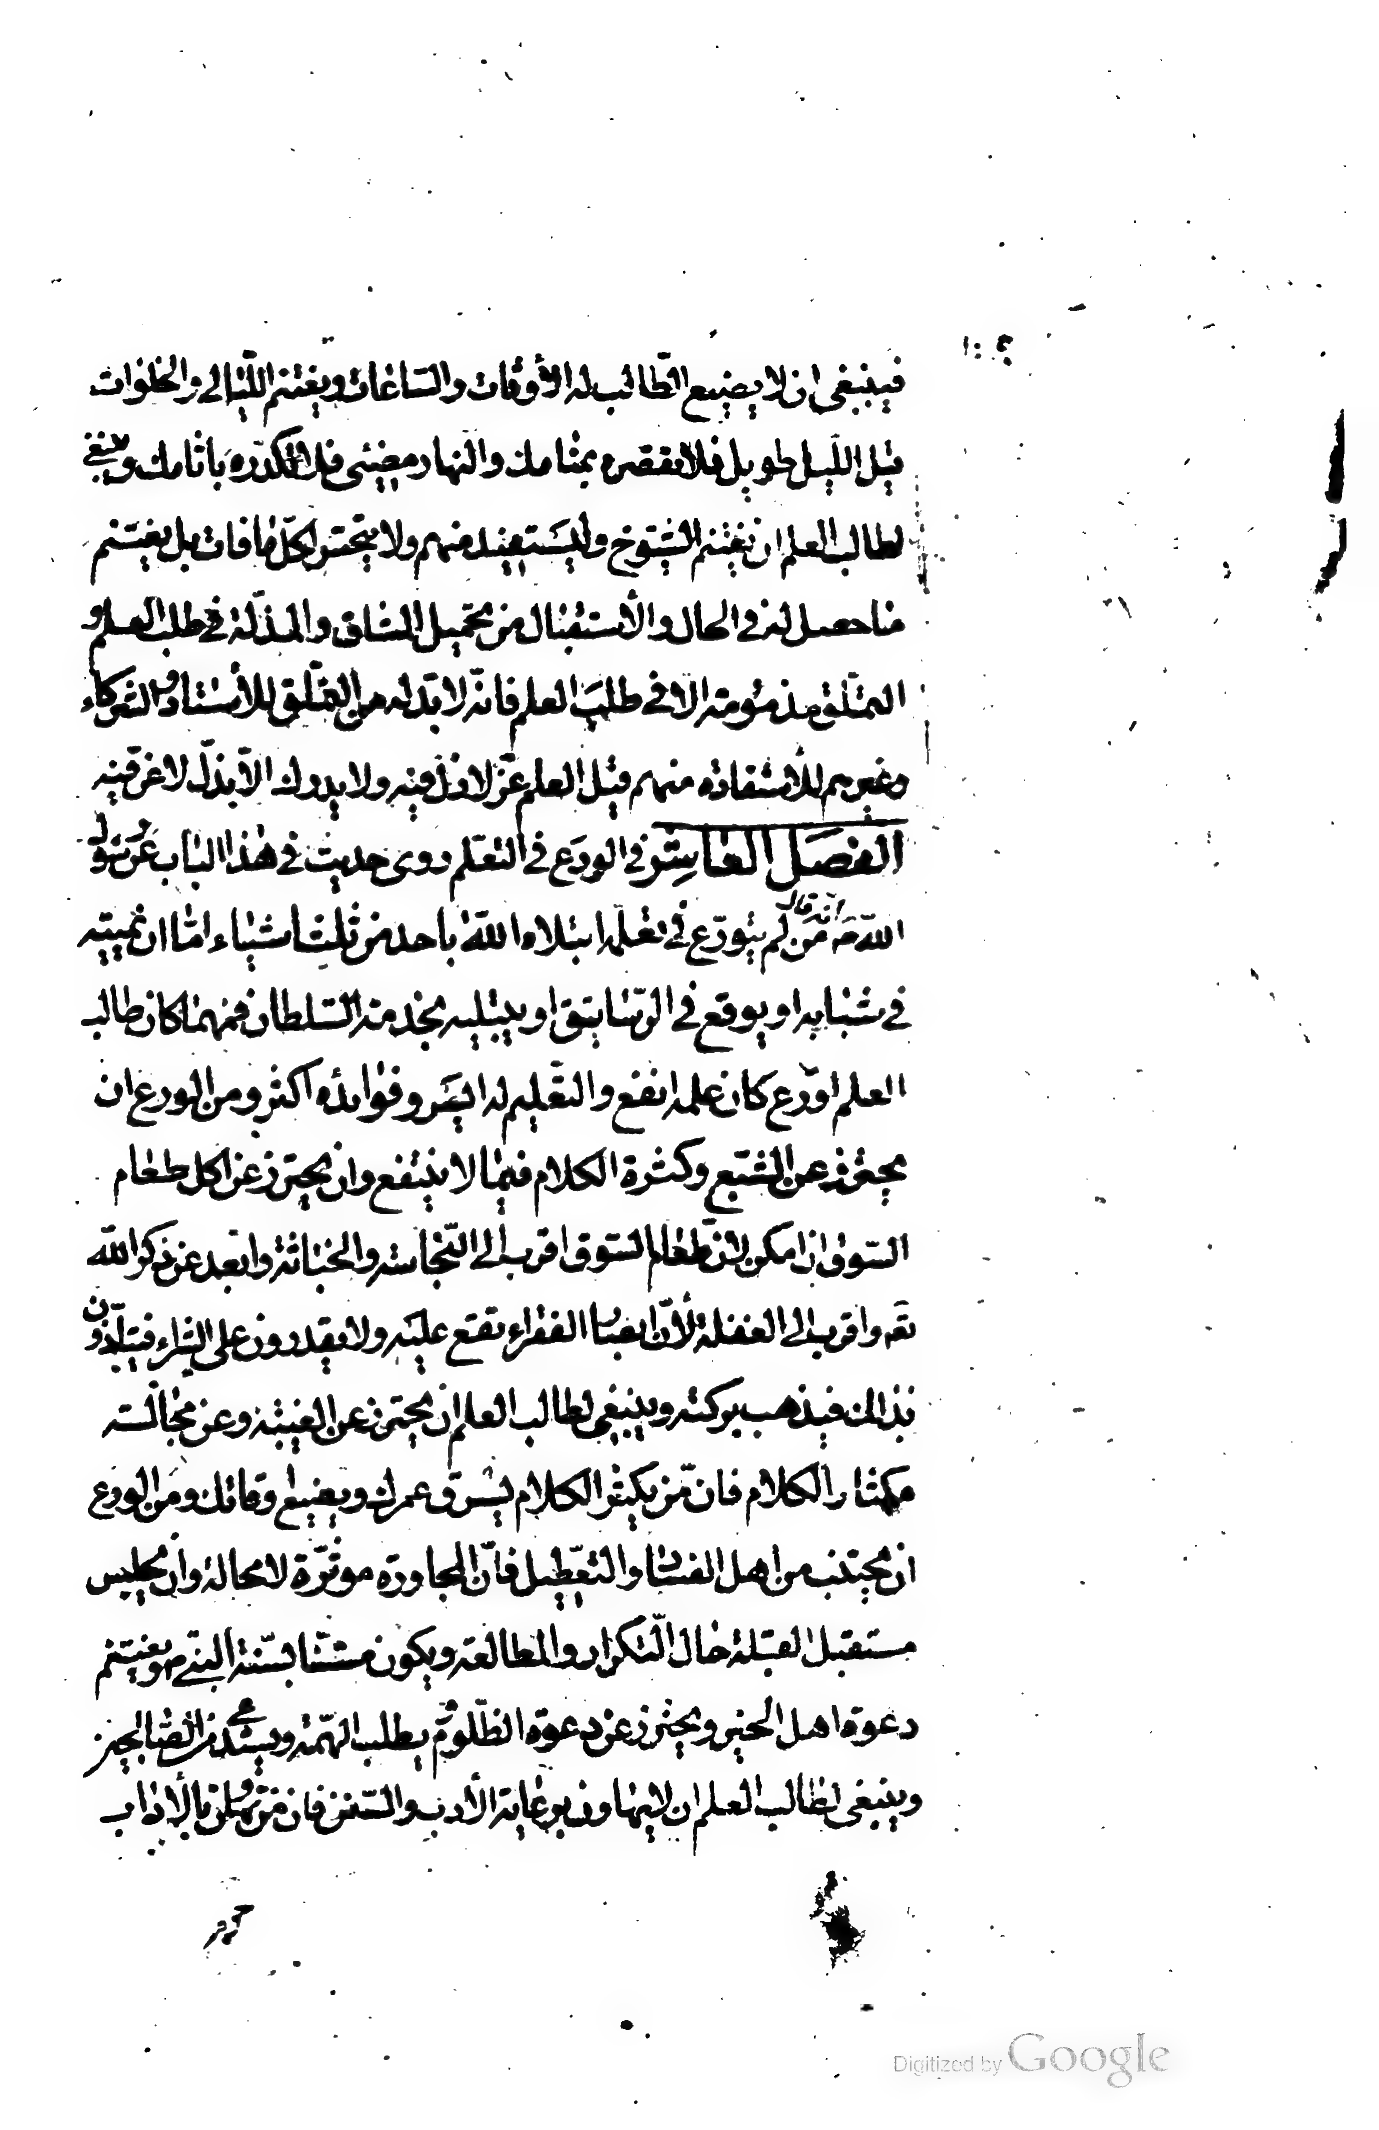 فينبغى ان لا يضيع الطّالب له الأوقات والسّاعات ويغتنم اللّيالى والخلوات
قيل اللّيل طويل فلا تقصره بمنامك والنهار مضيئى فلا تكدّره بآثامك وينبغى
لطالب العلم ان يغتنم الشيّوخ وليستفيد منهم ولا يتحسّر لكلّ ما فات بل يغتنم
ما حصل له فى الحال والأستقبال من تحميل المشاق والمذلّة فى طلب العلم و
التملّق مذمومة الّا فى طلب العلم فانّه لا بدّ له من التملّق للأستاد والشّركاء
وغيرهم للأستفاده منهم قيل العلم عزّ لا ذلّ فيه ولا يدرك الّا بذلّ لا عزّ فيه
الفصل العاشر فى الورع فى التعلّم روى حديث فى هذا الباب عن رسول
اللّه ص انّه قال من لم يتورّع فى تعلّمه ابتلاه اللّه باحد من ثلث اشياء امّا ان يميته
فى شبابه او يوقع فى الرّساتيق او يبتليه بخدمة السّلطان فمهما كان طالب
العلم اورع كان علمه انفع والتعّليم له ايسر وفوائده اكثر ومن الورع ان
يحترز عن الشّبع وكثرة الكلام فيما لا ينتفع وان يحترز عن اكل طعام
السّوق ان امكن لانّ طعام السّوق اقرب الى النّجاسة والخباثة وابعد عن ذكر اللّه
تعه واقرب الى الغفلة لأنّ ابصار الفقراء تقع عليه ولا يقدرون على الشراء فيتأذّون
بذالك فيذهب بركته وينبغى لطالب العلم ان يحترز عن الغيبة وعن مجالسة
مكثار الكلام فانّ من يكثر الكلام يسرق عمرك ويضيع اوقاتك ومن الورع
ان يجتنب من اهل الفساد والتعّطيل فانّ المجاورة موثّرة لا محالة وان يجليس
مستقبل القبلة حال التّكرار والمطالعة ويكون مستنّا بسّنة النّبى ص ويغتنم
دعوة اهل الخير ويحترز عن دعوة المظلوم يطلب الهمّة ويستدعى من الصّالحين
وينبغى لطالب العلم ان لا يتهاون برعاية الأدب والسّنن فان من تهاون بالأداب
Digitized by Google